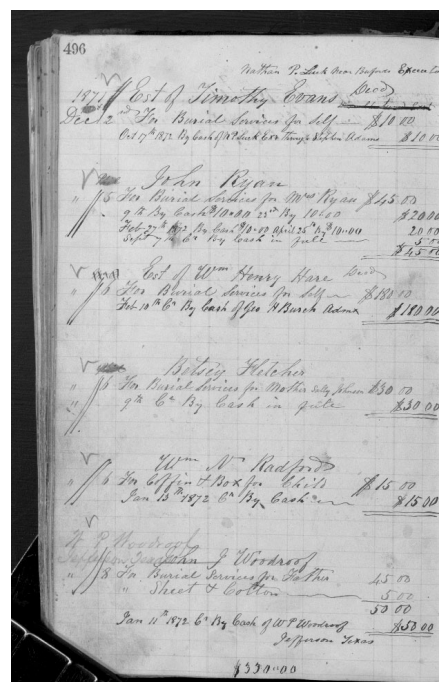 496
Nathan P. Luck Near Bufords Executor
1871 Est of Timothy Evans Decd
Dec 2nd For Burial Services for Self $10 00
Oct 17th 1872 By Cash of N P Luck Exr through Sophia Adams $10 00
John Ryan
" 5 For Burial Services for Mrs Ryan $45.00
" 9th By Cash $10.00 23rd By 10.00 $20 00
Feb 27th 1872 By Cash $10.00 April 25th By $10.00 20 00
Sept 7th Cr By Cash in full 5 00
$45 00
Est of Wm Henry Hare Decd
" 6 For Burial Services for Self $180 00
Feb 10th Cr By Cash of Geo H Burch Admx $180 00
Betsey Fletcher
" 6 For Burial Services for Mother Sally Johnson $30 00
" 9th Cr By Cash in full $30 00
Wm N Radford
" 6 For Coffin & Box for Child $15 00
Jan 13th 1872 Cr By Cash $15 00
W. P. Woodroof
Jefferson Texas John J Woodroof
" 8 For Burial Services for Father 45 00
" Sheet & Cotton 5 00
50 00
Jan 11th 1872 Cr By Cash of W P Woodroof $50 00
Jefferson Texas
$330.00